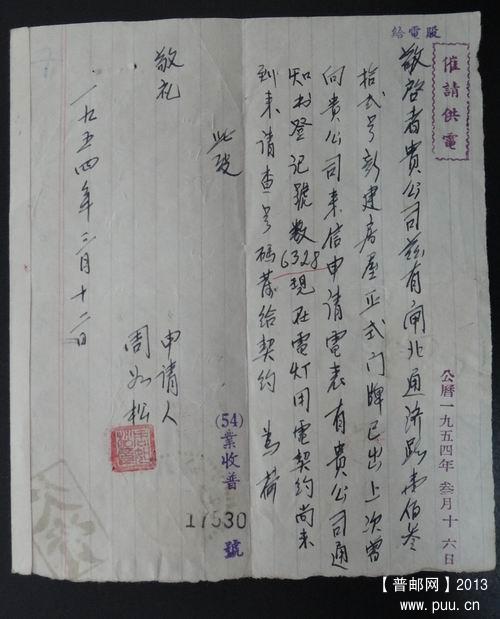 給電股
催請供電
公曆一九五四年叁月十六日
敬啓者貴公司茲有闸北通济路壹佰叁
拾弍号新建房屋正式门牌已出上次曾
向貴公司来信申请電表有貴公司通
知材登记號数6328現在電灯用電契约尚未
到来请查号码蓋给契约 为荷
此致
敬礼
申请人
周如松
一九五四年三月十二日
(54)業收普
17530
號
【普邮网】2013
www.puu.cn